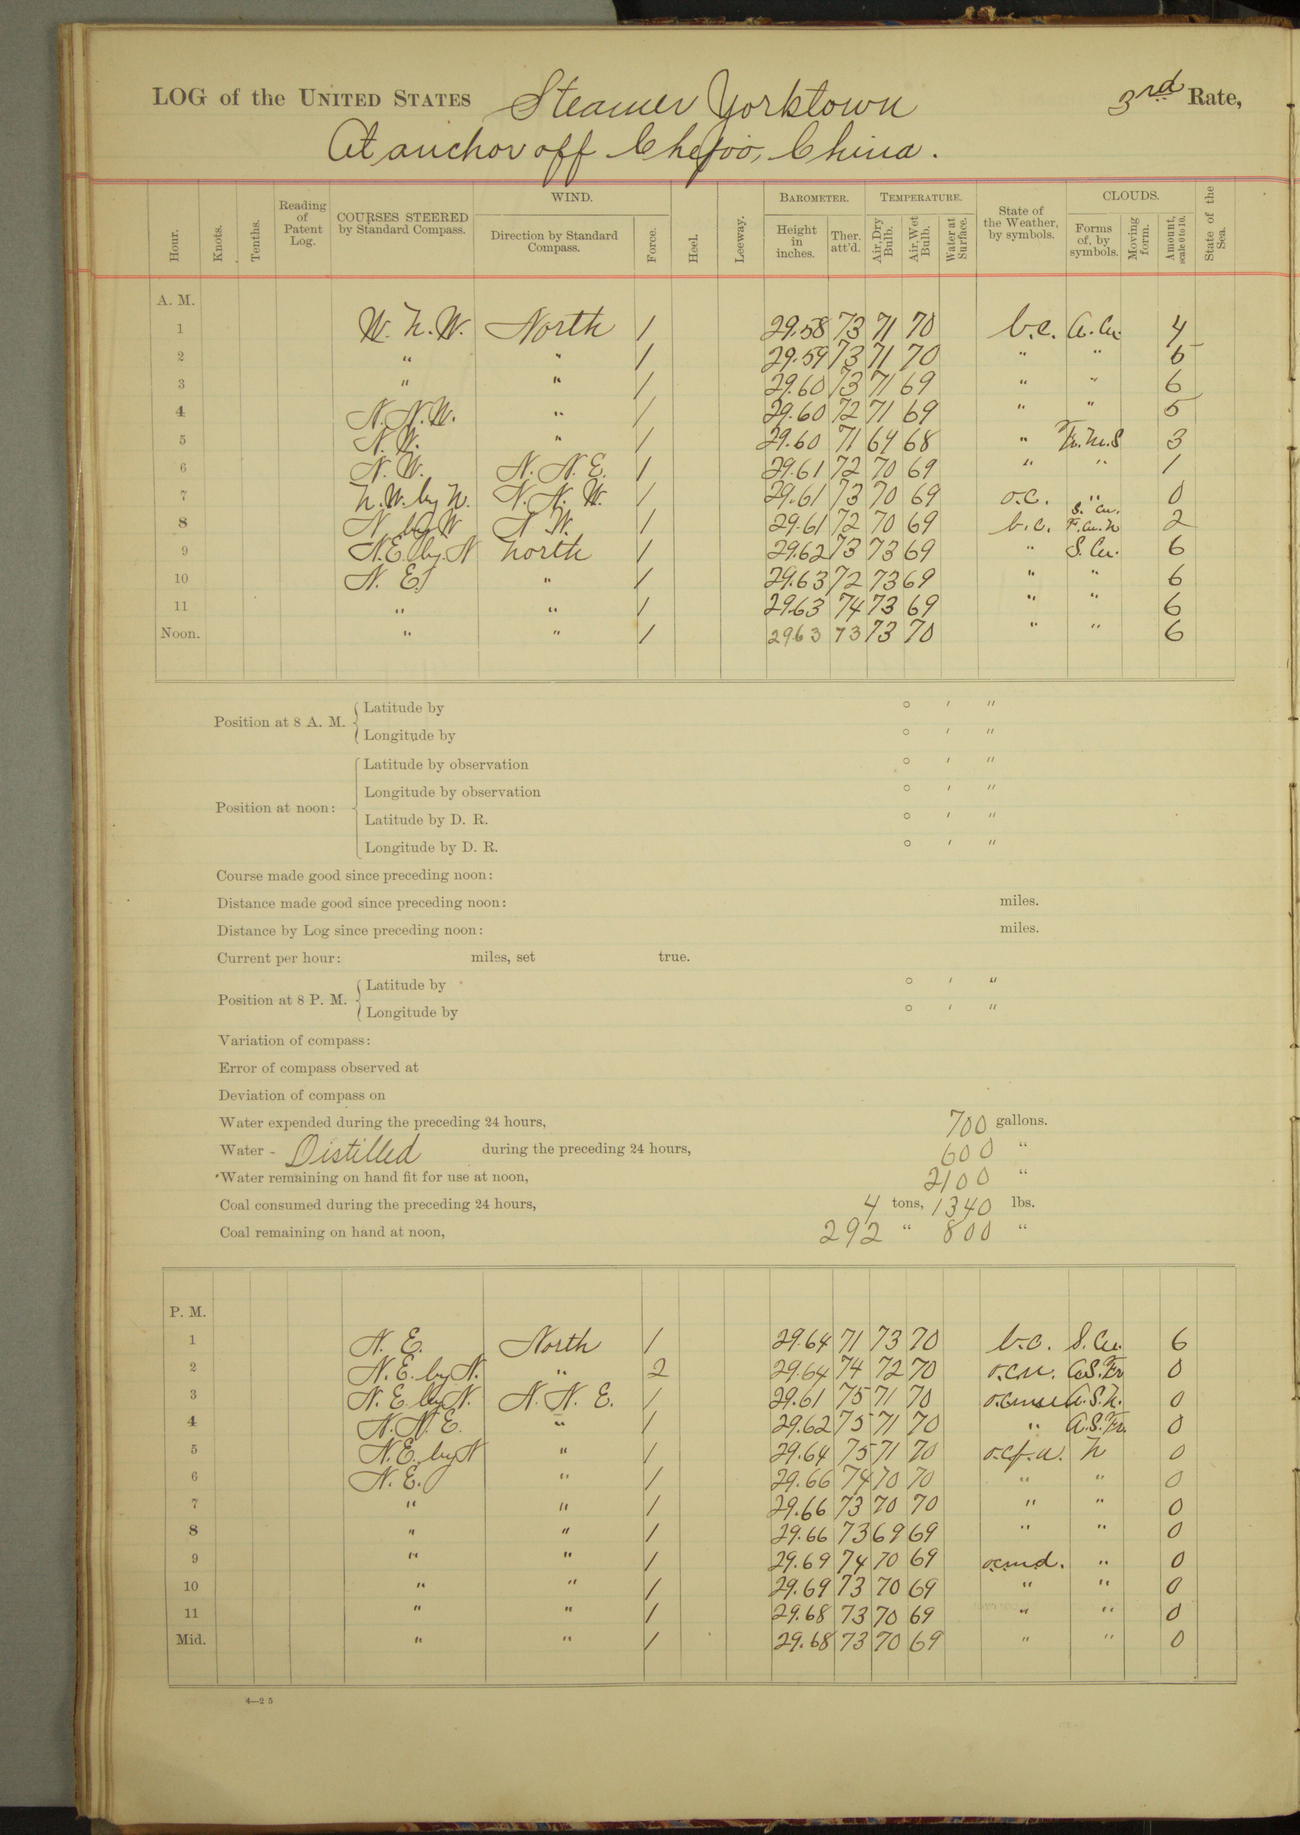 LOG of the UNITED STATES Steamer Yorktown 3rd Rate,
At anchor off Chefoo, China.
Hour. Knots. Tenths. Reading of Patent Log. COURSES STEERED by Standard Compass. WIND. Direction by Standard Compass. Force. Heel. Leeway. BAROMETER. Height in inches. Ther. att'd. TEMPERATURE. Air, Dry Bulb. Air, Wet Bulb. Water at Surface. State of the Weather, by symbols. CLOUDS. Forms of, by symbols. Moving form. Amount, scale 0 to 10. State of the Sea.
A. M.
1 W. N. W. North 1 29.58 73 71 70 b.c. A. Cu. 4
2 " " 1 29.59 73 71 70 " " 5
3 " " 1 29.60 73 71 69 " " 6
4 N. N. W. " 1 29.60 72 71 69 " " 5
5 N. W. " 1 29.60 71 69 68 " 3
6 N. W. N. N. E. 1 29.61 72 70 69 " " 1
7 N. W. by N. N. N. W. 1 29.61 73 70 69 o.c. " 0
8 N by W N. W. 1 29.61 72 70 69 b.c. S. Cu. F. Cu. N 2
9 N. E. by N North 1 29.62 73 73 69 " S. Cu. 6
10 N. E. " 1 29.63 72 73 69 " " 6
11 " " 1 29.63 74 73 69 " " 6
Noon. " " 1 29.63 73 73 70 " " 6
Position at 8 A. M. Latitude by ° ′ ″
Longitude by ° ′ ″
Position at noon: Latitude by observation ° ′ ″
Longitude by observation ° ′ ″
Latitude by D. R. ° ′ ″
Longitude by D. R. ° ′ ″
Course made good since preceding noon:
Distance made good since preceding noon: miles.
Distance by Log since preceding noon: miles.
Current per hour: miles, set true.
Position at 8 P. M. Latitude by ° ′ ″
Longitude by ° ′ ″
Variation of compass:
Error of compass observed at
Deviation of compass on
Water expended during the preceding 24 hours, 700 gallons.
Water - Distilled during the preceding 24 hours, 600 "
Water remaining on hand fit for use at noon, 2100 "
Coal consumed during the preceding 24 hours, 4 tons, 1340 lbs.
Coal remaining on hand at noon, 292 " 800 "
P. M.
1 N. E. North 1 29.64 71 73 70 b.c. S. Cu. 6
2 N. E. by N. " 2 29.64 74 72 70 0
3 N. E. by N. N. N. E. 1 29.61 75 71 70 A. S. N. 0
4 N. N. E. " 1 29.62 75 71 70 " 0
5 N. E. by N " 1 29.64 75 71 70 N 0
6 N. E. " 1 29.66 74 70 70 " " 0
7 " " 1 29.66 73 70 70 " " 0
8 " " 1 29.66 73 69 69 " " 0
9 " " 1 29.69 74 70 69 o.c.m.d. " 0
10 " " 1 29.69 73 70 69 " " 0
11 " " 1 29.68 73 70 69 " " 0
Mid. " " 1 29.68 73 70 69 " " 0
4—25